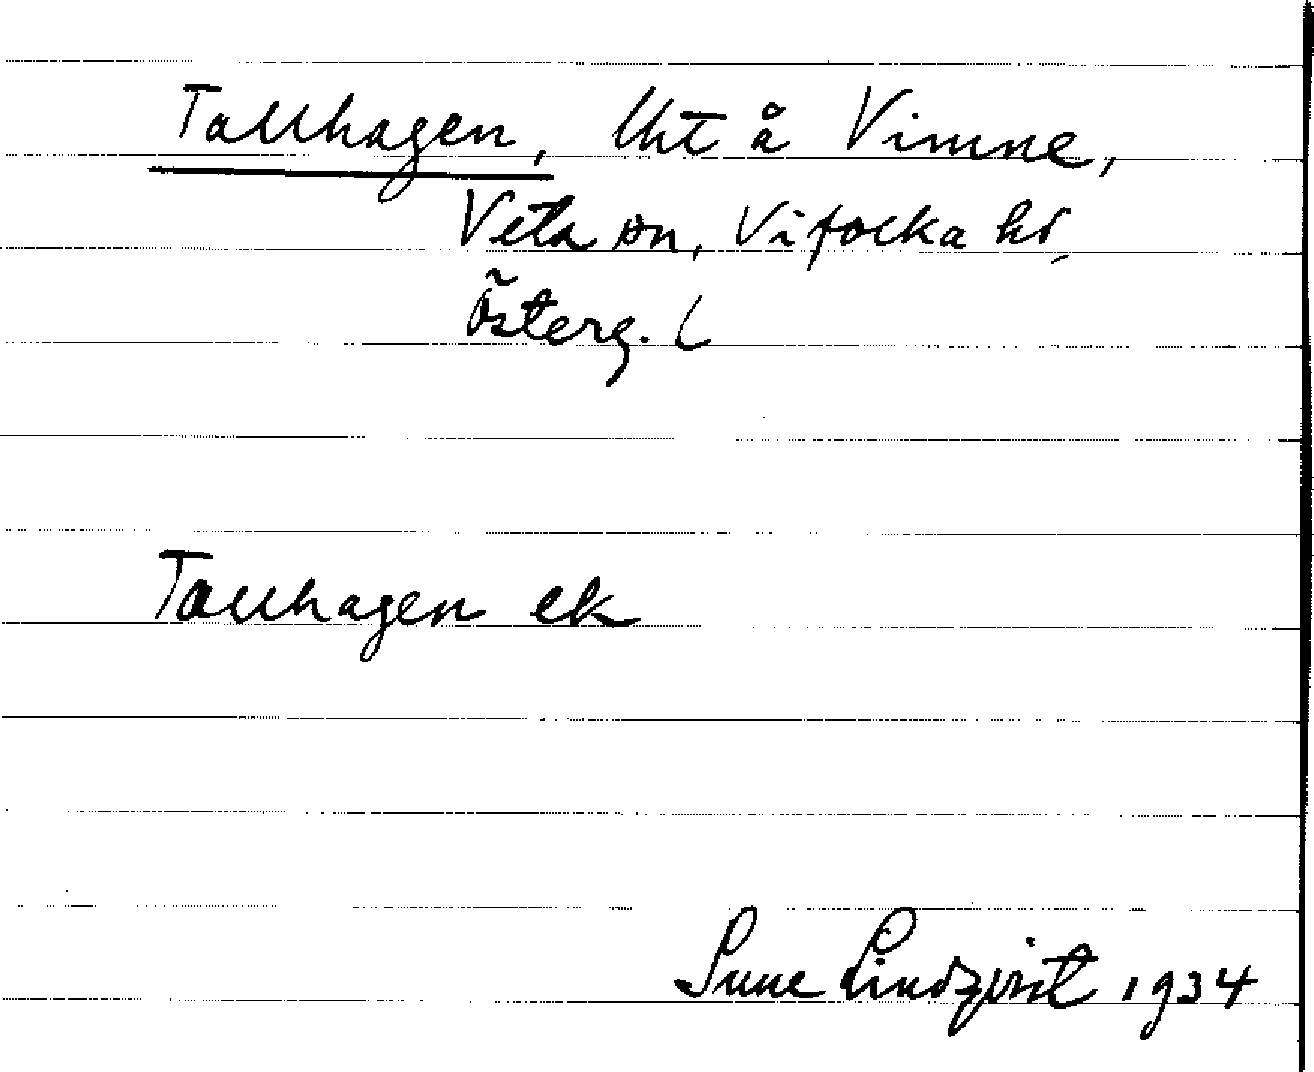 Tallhagen, lht å Vimne,
Veta sn, Vifolka hd,
Österg. l
Tallhagen ek
Sune Lindqvist 1934